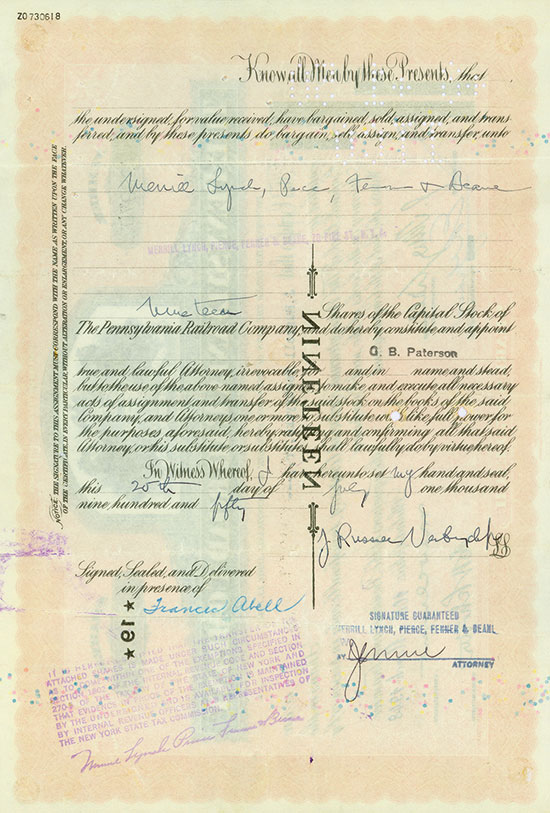 ZO730618
Know all Men by these Presents, that
the undersigned, for value received, have bargained, sold, assigned, and trans
ferred, and by these presents do bargain, sell, assign, and transfer, unto
Merrill Lynch, Pierce, Fenner & Beane
MERRILL LYNCH, PIERCE, FENNER & BEANE, 70 PINE ST., N.Y. 5
nineteen Shares of the Capital Stock of
The Pennsylvania Railroad Company and do hereby constitute and appoint
G. B. Paterson
true and lawful Attorney, irrevocable and in name and stead,
but to the use of the above named assignee to make and execute all necessary
acts of assignment and transfer of the said stock on the books of the said
Company, and Attorneys, one or more to substitute with like full power for
the purposes aforesaid, hereby ratifying and confirming all that said
Attorney, or his substitute or substitutes shall lawfully do by virtue hereof.
In Witness Whereof, I have hereunto set my hand and seal,
this 20th day of July one thousand
nine hundred and fifty
J. Russell
LS
Signed, Sealed, and Delivered
in presence of
Frances Abell
NINETEEN
★ 19 ★
SIGNATURE GUARANTEED
MERRILL LYNCH, PIERCE, FENNER & BEANE
BY
ATTORNEY
NOTICE. THE SIGNATURE TO THIS ASSIGNMENT MUST CORRESPOND WITH THE NAME AS WRITTEN UPON THE FACE
OF THE CERTIFICATE, IN EVERY PARTICULAR, WITHOUT ALTERATION OR ENLARGEMENT, OR ANY CHANGE WHATEVER.
ATTACHED
AS TO MADE UNDER SUCH CIRCUMSTANCES
SECTION OF THE EXEMPTIONS SPECIFIED IN
270 OF THE INTERNAL REVENUE CODE AND SECTION
THAT EVIDENCE OF THE OF NEW YORK AND
BY THE UNDERSIGNED AND IS AVAILABLE IS MAINTAINED
BY INTERNAL REVENUE OFFICERS FOR INSPECTION
THE NEW YORK STATE TAX COMMISSION. REPRESENTATIVES OF
Merrill Lynch Pierce Fenner & Beane